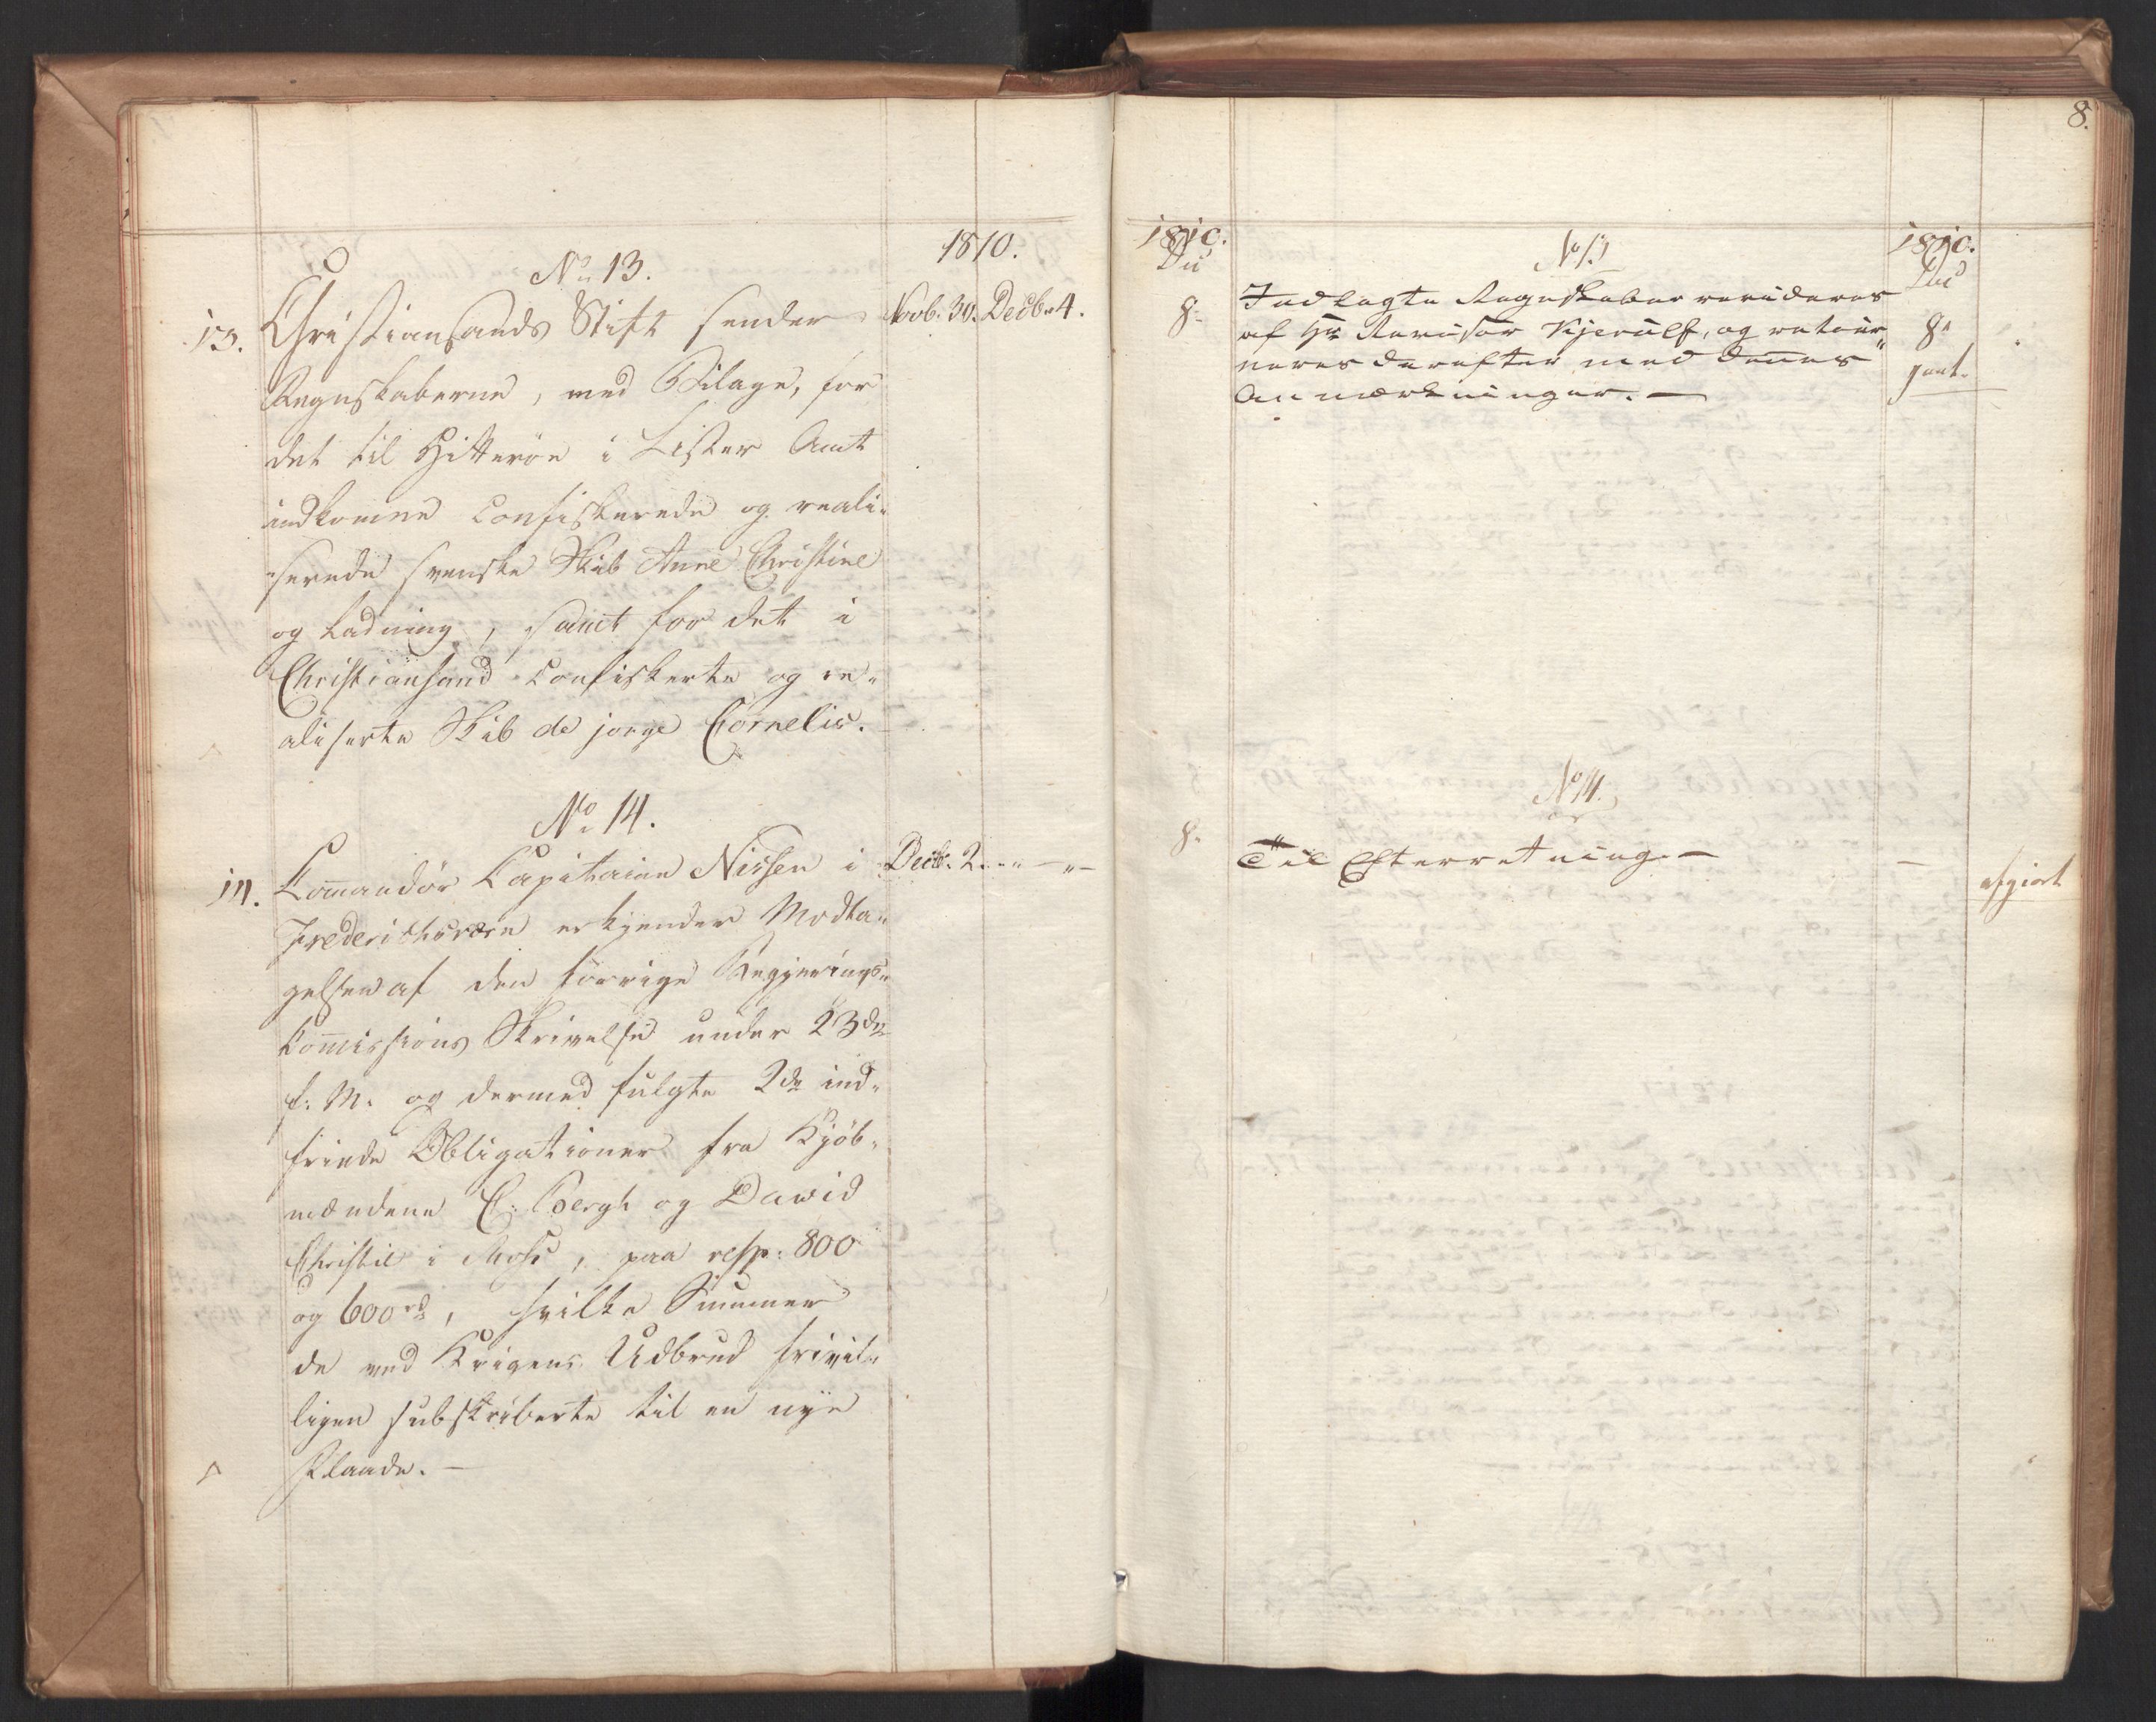 1810.
No 13.
13. Christiansands Stift sender Novb. 30. Decbr 4.
Regnskaberne, med Bilage, for
det til Hitterøe i Lister Amt
indkomne Confiskerede og reali-
serede svenske Skib Anne Christine
og Ladning, samt for det i
Christiansand Confiskerte og re-
aliserte Skib de jonge Cornelis.
No 14.
14. Commandør Capitaine Nissen i Decbr. 2. " — " —
Frederichsværn erkjender Modta-
gelsen af den forrige Regjerings-
Commissions Skrivelse under 23de
f. M. og dermed fulgte 2de ind-
friede Obligationer fra Kjøb-
mændene C. Bergh og David
Christie i Moss, paa resp: 800
og 600 rd, hvilke Summer
de ved Krigens Udbrud frivil-
ligen subskriberte til en nye
Flaade. —
8.
1810. 1810.
Dec Dec
No 13
8. Indlagte Regnskaber revideres
af Hr Revisor Kjerulf, og retour- 8
neres derefter med dennes
Anmærkninger. —
No 14.
8. Til Efterretning — —
afgjort